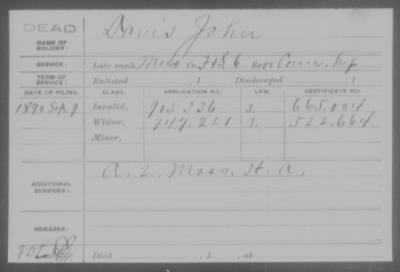 DEAD
NAME OF SOLDIER: Davis John
SERVICE: Late rank, Mus Co. F & S 6 Reg't Conn. Inf
TERM OF SERVICE: Enlisted , 1 Discharged , 1
DATE OF FILING. CLASS. APPLICATION NO. LAW. CERTIFICATE NO.
1890 Sep. 9 Invalid, 903.336 3. 665.004
Widow, 717.221 1. 522.664
Minor,
ADDITIONAL SERVICES: A. 2. Mass. H. A.
REMARKS:
Died , 1 , at